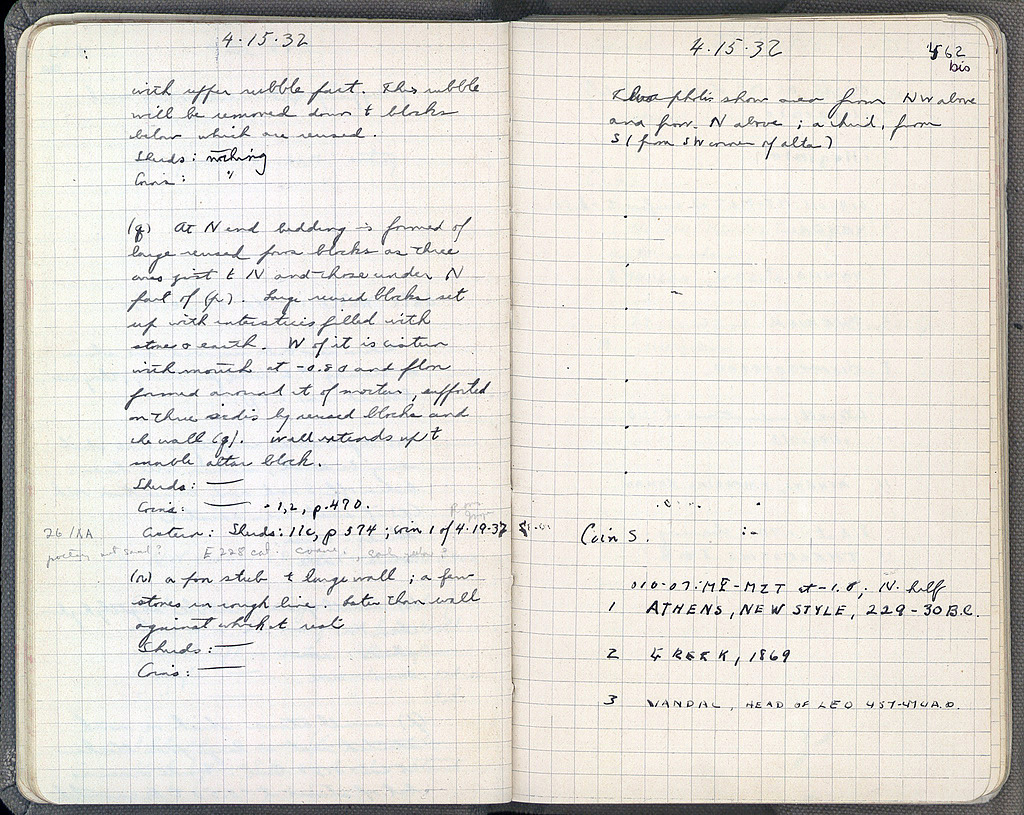 4·15·32
with upper rubble part. This rubble
will be removed down to blocks
below which are reused.
Sherds: nothing
Coins: "
(q) At N end bedding is formed of
large reused poros blocks as three
ones just to N and those under N
part of (p). Large reused blocks set
up with interstices filled with
stones & earth. W of it is cistern
with mouth at -0.80 and floor
formed around it of mortar, supported
on three sides by reused blocks and
the wall (q). Wall extends up to
marble altar block.
Sherds: —
Coins: — ·1,2, p.470.
Cistern: Sherds: 11c, p 574; coin 1 of 4·19·37
26/ΚΑ
pottery not saved?
E 228 cat.
(r) a poros stub to large wall; a few
stones in rough line. Later than wall
against which it rests
Sherds: —
Coins: —
4·15·32
562
bis
Two photos show area from NW above
and from N above; a third, from
S (from SW corner of altar)
Coins.
010-07:ΜΞ-ΜΣΤ at -1.0; N. half
1 ATHENS, NEW STYLE, 229-30 B.C.
2 GREEK, 1869
3 VANDAL, HEAD OF LEO 457-474 A.D.